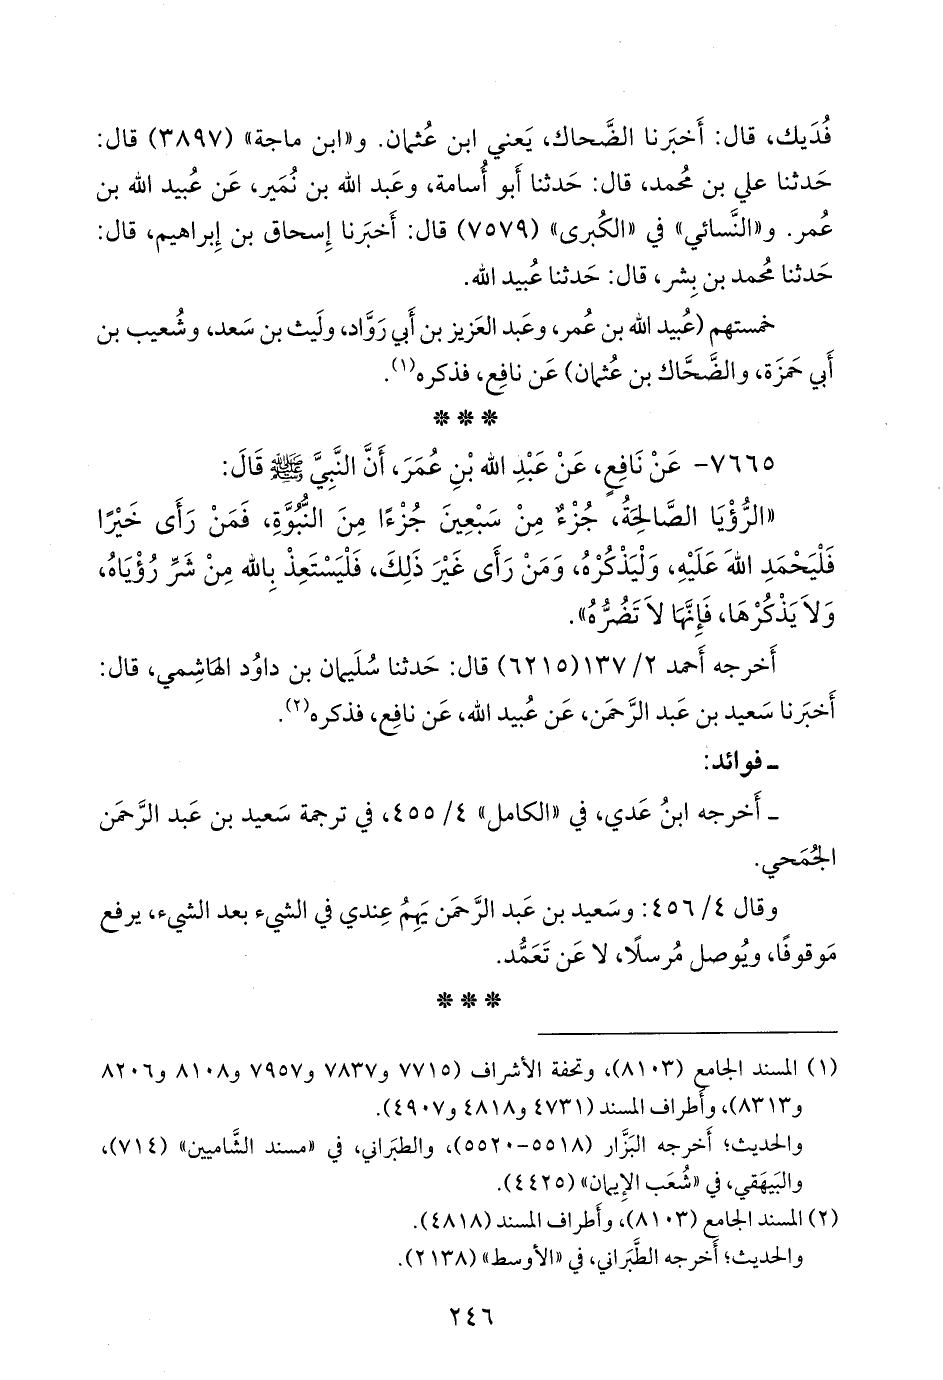 فُدَيك، قال: أَخبَرنا الضَّحاك، يَعني ابن عُثمان. و«ابن ماجة» (٣٨٩٧) قال:
حَدثنا علي بن مُحمد، قال: حَدثنا أَبو أُسامة، وعَبد الله بن نُمَير، عَن عُبيد الله بن
عُمر. و«النَّسائي» في «الكُبرى» (٧٥٧٩) قال: أَخبَرنا إِسحاق بن إِبراهيم، قال:
حَدثنا مُحمد بن بِشر، قال: حَدثنا عُبيد الله.
خمستهم (عُبيد الله بن عُمر، وعَبد العَزيز بن أَبي رَوَّاد، ولَيث بن سَعد، وشُعيب بن
أَبي حَمزَة، والضَّحَّاك بن عُثمان) عَن نافِع، فذكره(١).
***
٧٦٦٥- عَنْ نَافِعٍ، عَنْ عَبْدِ الله بْنِ عُمَرَ، أَنَّ النَّبِيَّ ﷺ قَالَ:
«الرُّؤْيَا الصَّالِحَةُ، جُزْءٌ مِنْ سَبْعِينَ جُزْءًا مِنَ النُّبُوَّةِ، فَمَنْ رَأَى خَيْرًا
فَلْيَحْمَدِ اللهَ عَلَيْهِ، وَلْيَذْكُرْهُ، وَمَنْ رَأَى غَيْرَ ذَلِكَ، فَلْيَسْتَعِذْ بِالله مِنْ شَرِّ رُؤْيَاهُ،
وَلاَ يَذْكُرْهَا، فَإِنَّهَا لاَ تَضُرُّهُ».
أَخرجه أَحمد ٢/ ١٣٧ (٦٢١٥) قال: حَدثنا سُلَيمان بن داوُد الهَاشِمي، قال:
أَخبَرنا سَعيد بن عَبد الرَّحمَن، عَن عُبيد الله، عَن نافِع، فذكره(٢).
ـ فوائد:
ـ أَخرجه ابنُ عَدي، في «الكامل» ٤/ ٤٥٥، في ترجمة سَعيد بن عَبد الرَّحمَن
الجُمَحي.
وقال ٤/ ٤٥٦: وسَعيد بن عَبد الرَّحمَن يَهِمُ عِندي في الشيء بعد الشيء، يرفع
مَوقوفًا، ويُوصل مُرسلًا، لا عَن تَعَمُّد.
***
(١) المسند الجامع (٨١٠٣)، وتحفة الأشراف (٧٧١٥ و٧٨٣٧ و٧٩٥٧ و٨١٠٨ و٨٢٠٦
و٨٣١٣)، وأَطراف المسند (٤٧٣١ و٤٨١٨ و٤٩٠٧).
والحديث؛ أَخرجه البَزَّار (٥٥١٨-٥٥٢٠)، والطبَراني، في «مسند الشَّاميين» (٧١٤)،
والبَيهَقي، في «شُعَب الإِيمان» (٤٤٢٥).
(٢) المسند الجامع (٨١٠٣)، وأَطراف المسند (٤٨١٨).
والحديث؛ أَخرجه الطَّبَراني، في «الأَوسط» (٢١٣٨).
٢٤٦